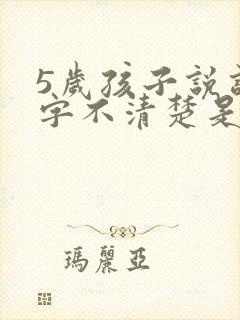 5歲孩子說
字不清楚是
瑪麗亞